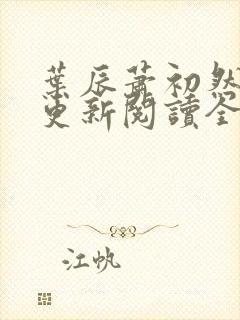 葉辰蕭初然
更新閱讀全
江帆